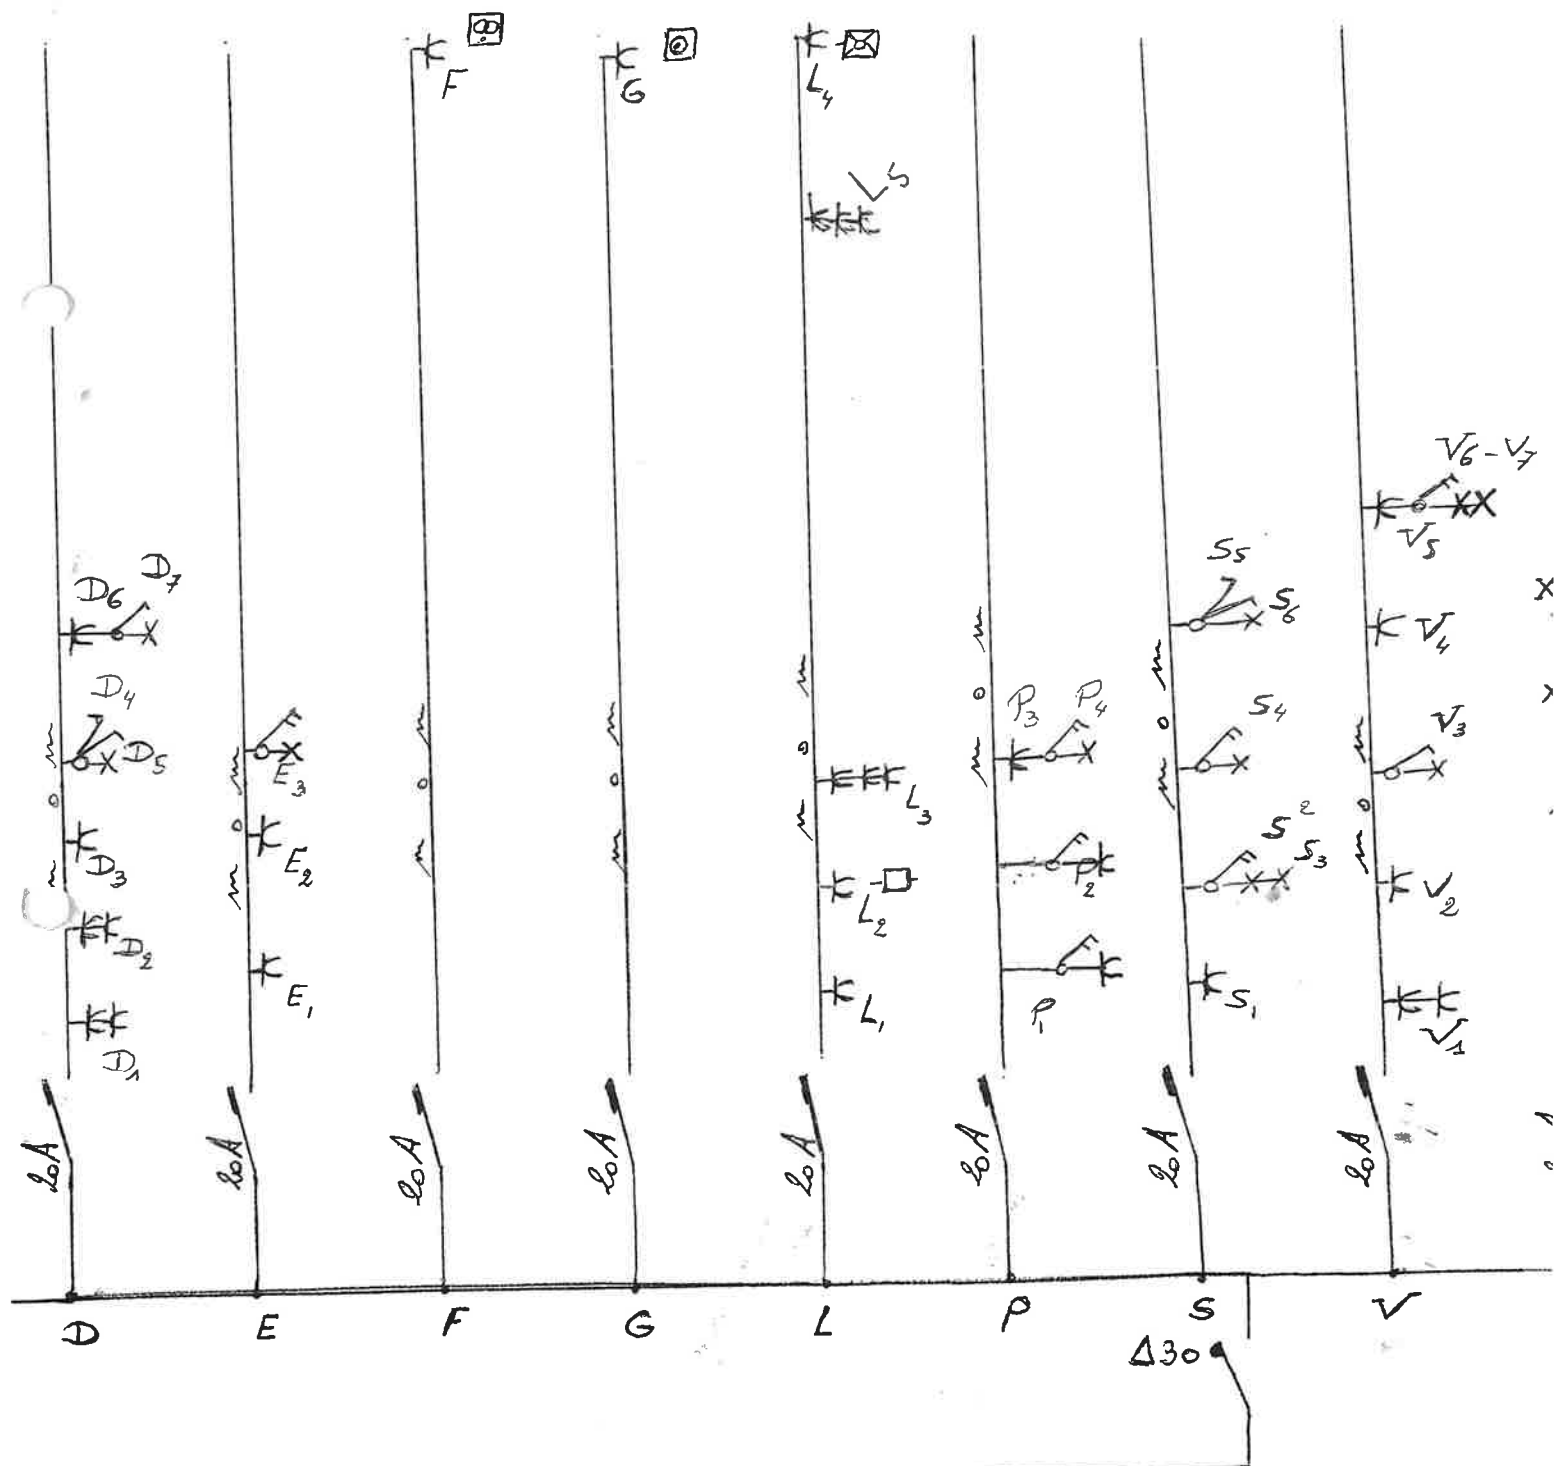 F
G
L₄
5
V₆-V₇
V₅
D₆ D₇
S₅
S₆
V₄
D₄
D₅
E₃
P₃ P₄
S₄
V₃
L₃
D₃
E₂
P₂
S²
S₃
L₂
V₂
D₂
E₁
L₁
P₁
S₁
V₁
D₁
20A 20A 20A 20A 20A 20A 20A 20A
D E F G L P S V
Δ30